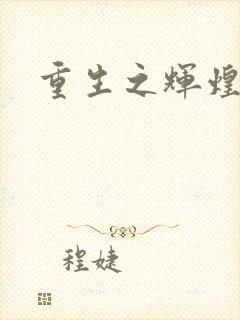 重生之辉煌
程婕